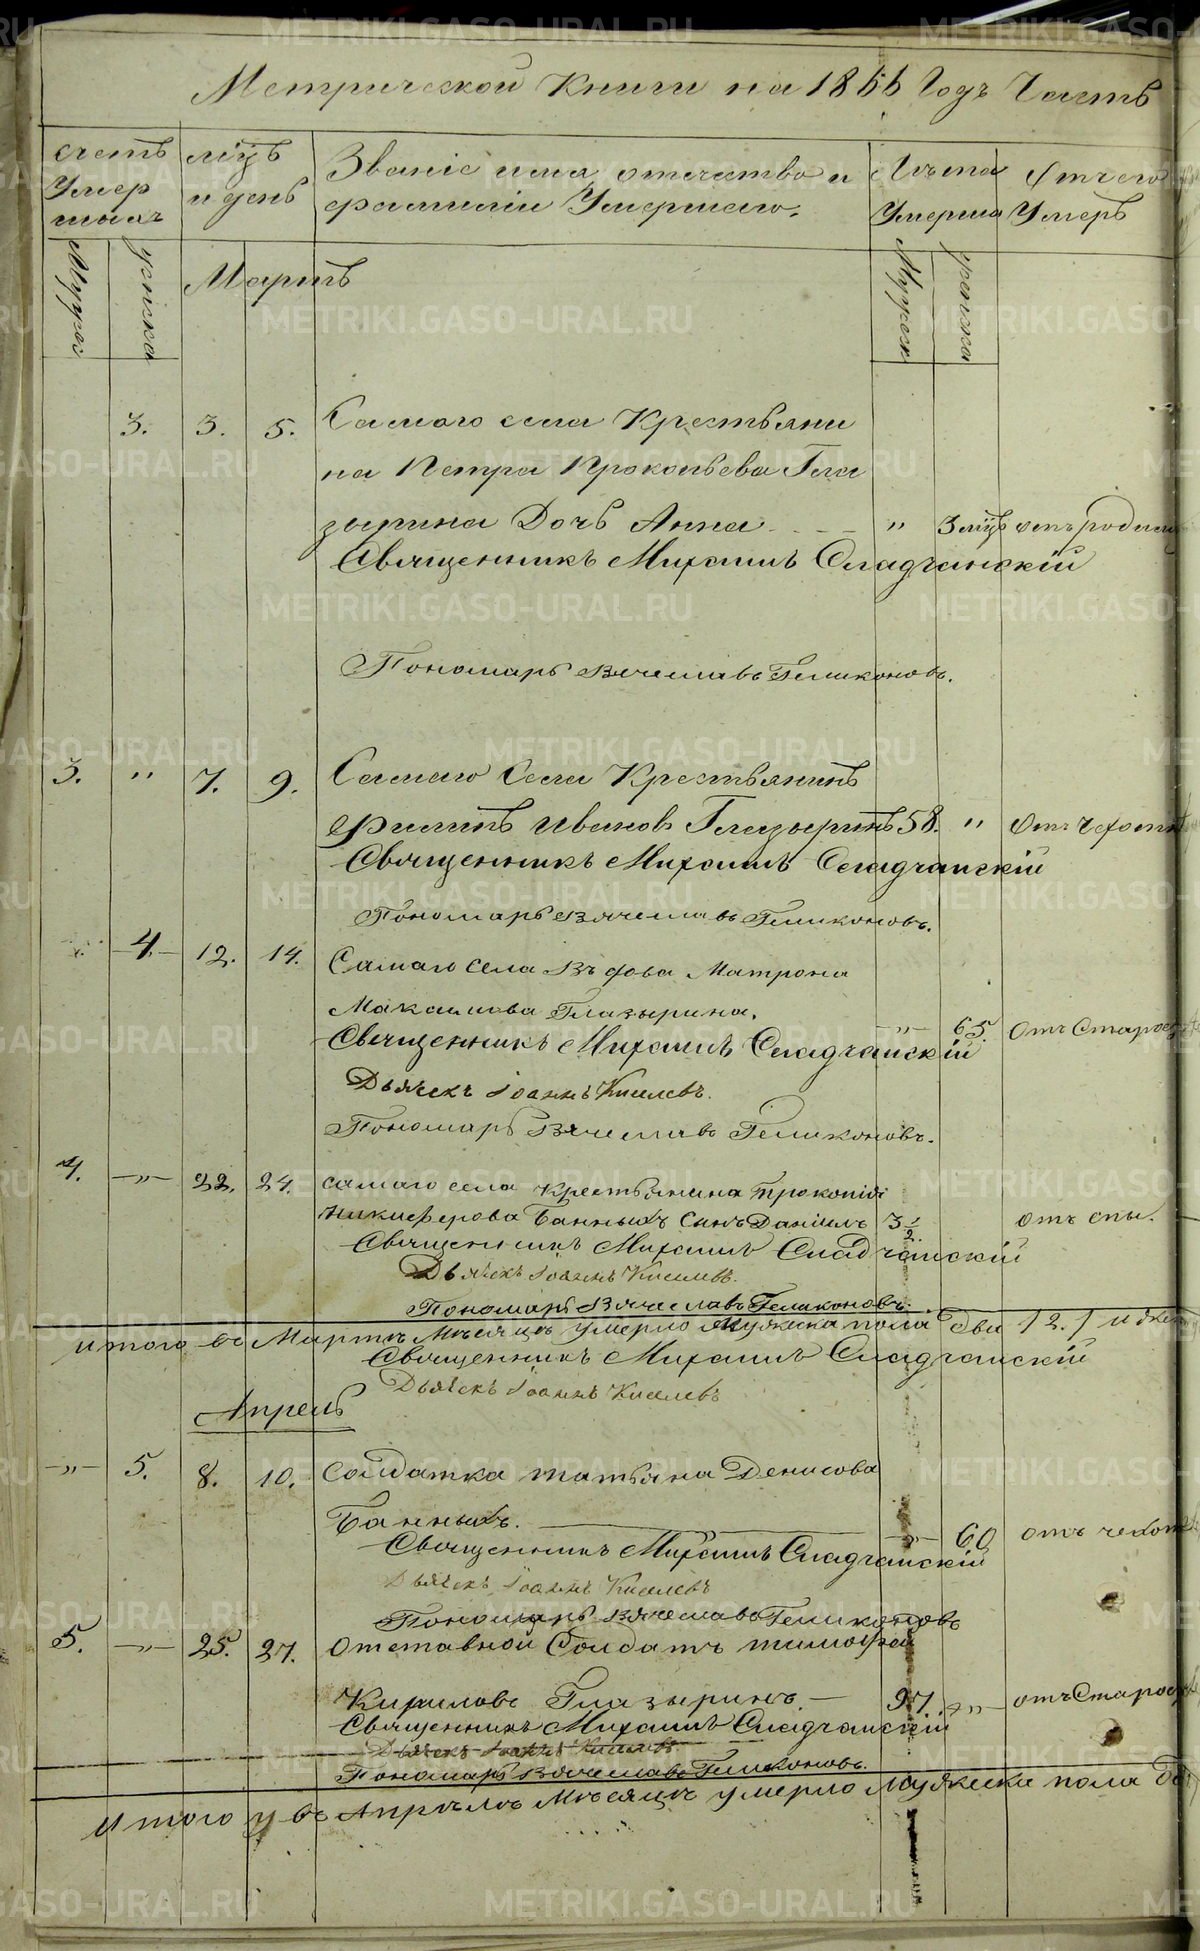 Метрической Книги на 1866 Годъ Часть
счетъ Умер шихъ
мѣцъ и день
Званіе имя, отечество и фамиліи Умершаго.
Лѣта Умерша
Отъ чего Умеръ
Мужск
женска
Мартъ
Мужеск
женска
3. 3. 5. Самаго села Крестьяни
на Петра Прокопьева Гла
зырина Дочь Анна " 3 мѣц отъ родим
Священникъ Михаилъ Сладчанскій
Пономарь Вячеславъ Геликоновъ.
3. " 7. 9. Самаго Села Крестьянинъ
Филипъ Ивановъ Глазыринъ 58. " отъ чахотк
Священникъ Михаилъ Сладчанскій
Пономарь Вячеславъ Геликоновъ.
4. 12. 14. Самаго села Вдова Матрона
Максимова Глазырина. " 65. отъ Старос
Священникъ Михаилъ Сладчанскій
Дьячекъ Іоаннъ Киселевъ.
Пономарь Вячеславъ Геликоновъ.
4. " 22. 24. самаго села Крестьянина Прокопія
Никиферова Банныхъ Сынъ Даніилъ 3 1/2. отъ спы.
Священникъ Михаилъ Сладчанскій
Дьячекъ Іоаннъ Киселевъ.
Пономарь Вячеславъ Геликоновъ.
итого въ Мартѣ Мѣсяцѣ умерло Мужеска пола два /2./ и жен
Священникъ Михаилъ Сладчанскій
Дьячекъ Іоаннъ Киселевъ
Апрель
" 5. 8. 10. Солдатка татьяна Денисова
Банныхъ. " 60 отъ чехот
Священникъ Михаилъ Сладчанскій
Дьячекъ Іоаннъ Киселевъ
Пономарь Вячеславъ Геликоновъ
5. " 25. 27. Отставной Солдатъ тимофей
Кириловъ Глазыринъ. 97. " отъ Старос
Священникъ Михаилъ Сладчанскій
Дьячекъ Іоаннъ Киселевъ
Пономарь Вячеславъ Геликоновъ.
итого въ Апрѣлѣ Мѣсяцѣ умерло Мужеска пола
METRIKI.GASO-URAL.RU